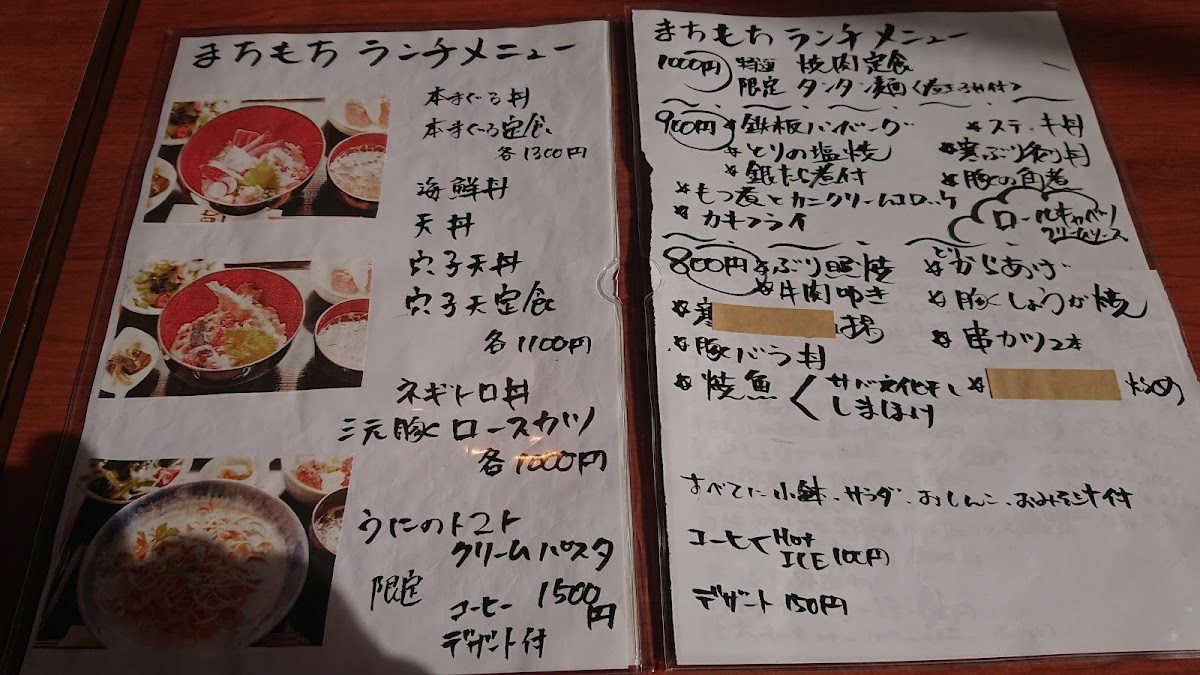 まちもち ランチメニュー
本まぐろ丼
本まぐろ定食
各1300円
海鮮丼
天丼
穴子天丼
穴子天定食
各1100円
ネギトロ丼
三元豚 ロースカツ
各1000円
うにのトマト
クリームパスタ
限定
コーヒー 1500円
デザート付
まちもち ランチメニュー
1000円 特選 焼肉定食
限定 タンタン麺
900円 *鉄板ハンバーグ *ステーキ丼
*とりの塩焼 *寒ぶり 丼
*銀だら煮付 *豚の角煮
*もつ煮とカニクリームコロッケ
*カキフライ ロールキャベツ
クリームソース
800円 *ぶり照焼 *からあげ
*牛肉叩き *豚しょうが焼
*寒 揚
*串カツ2本
*豚バラ丼
*焼魚 サバ文化干し * 炒め
しまほっけ
すべてに小鉢、サラダ、おしんこ、おみそ汁付
コーヒー Hot
ICE 100円
デザート 150円